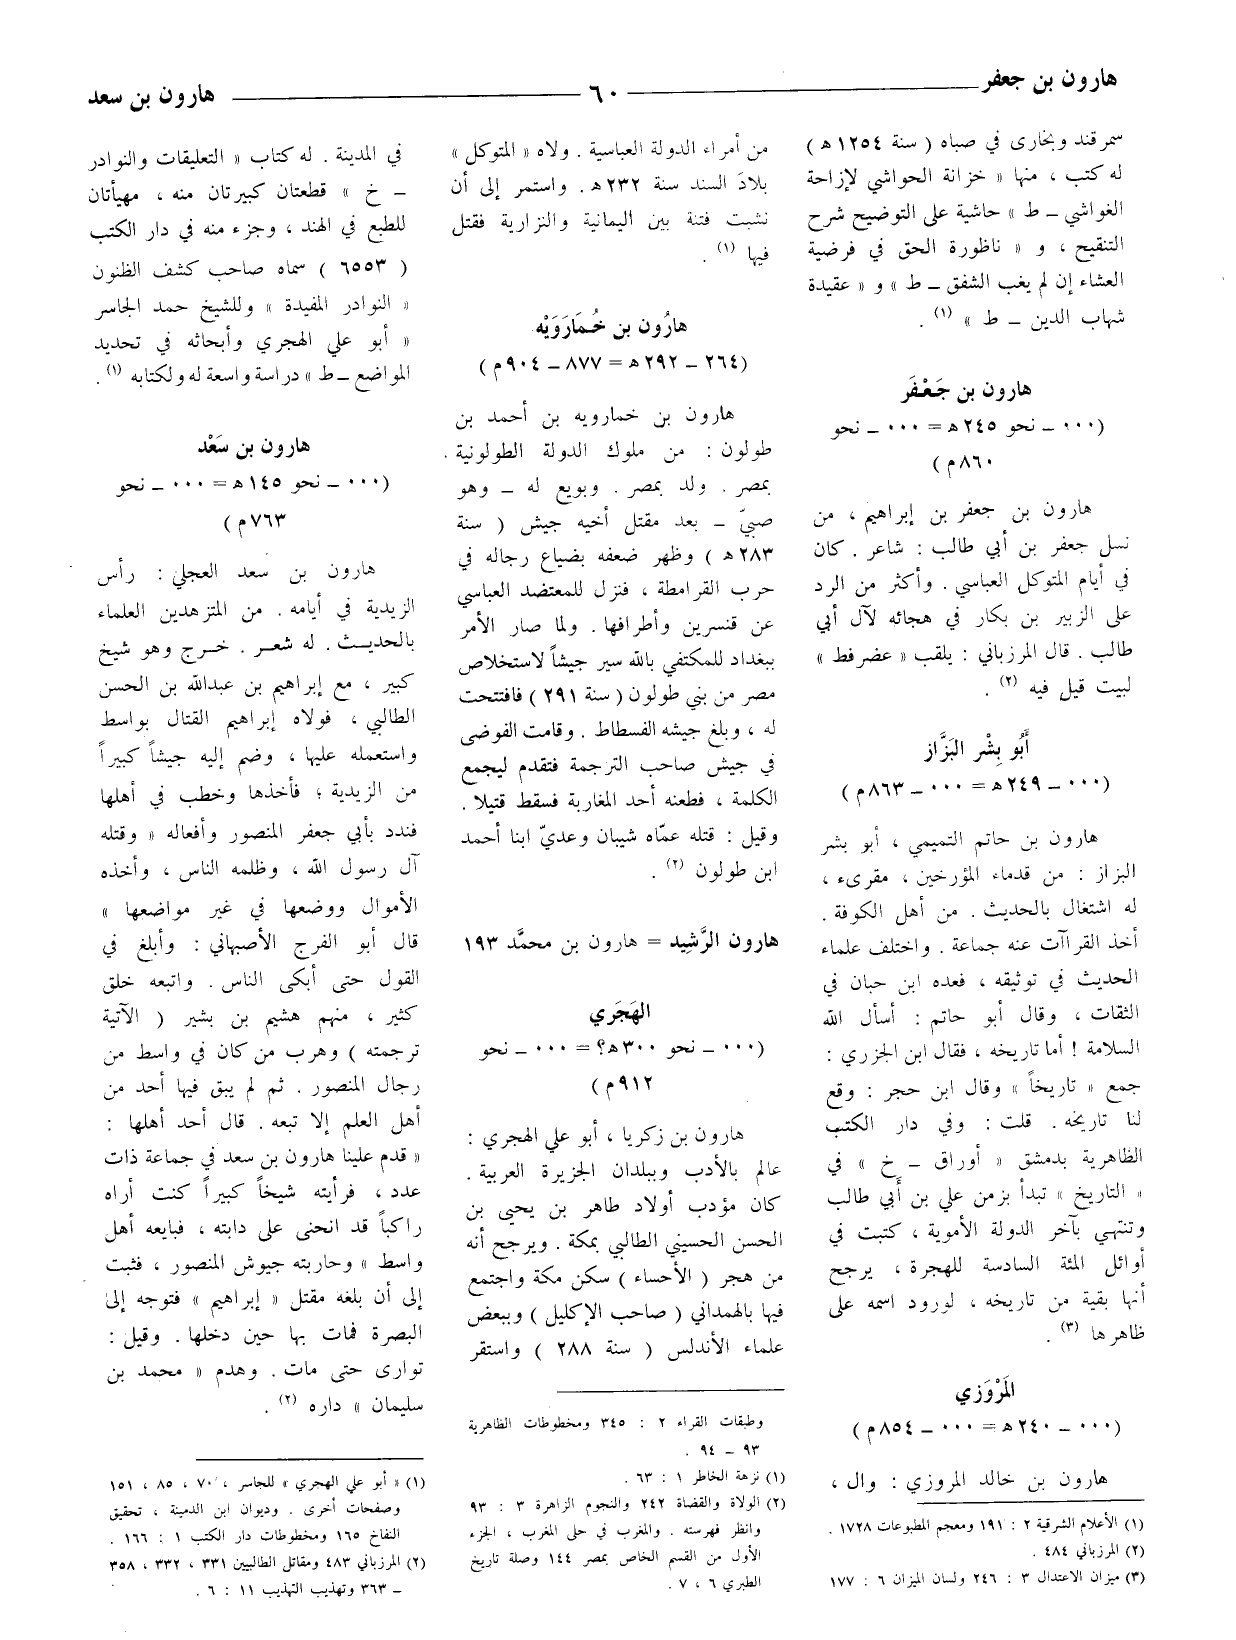 هارون بن جعفر ــــــ ٦٠ ــــــ هارون بن سعد
سمرقند وبخارى في صباه ( سنة ١٢٥٤ هـ )
له كتب ، منها « خزانة الحواشي لإزاحة
الغواشي ـ ط » حاشية على التوضيح شرح
التنقيح ، و « ناظورة الحق في فرضية
العشاء إن لم يغب الشفق ـ ط » و « عقيدة
شهاب الدين ـ ط » (١) .
هارون بن جَعْفَر
(٠٠٠ ـ نحو ٢٤٥ هـ = ٠٠٠ ـ نحو
٨٦٠ م)
هارون بن جعفر بن إبراهيم ، من
نسل جعفر بن أبي طالب : شاعر . كان
في أيام المتوكل العباسي . وأكثر من الرد
على الزبير بن بكار في هجائه لآل أبي
طالب . قال المرزباني : يلقب « عضرفط »
لبيت قيل فيه (٢) .
أَبُو بِشْر البَزَّاز
(٠٠٠ ـ ٢٤٩ هـ = ٠٠٠ ـ ٨٦٣ م)
هارون بن حاتم التميمي ، أبو بشر
البزاز : من قدماء المؤرخين ، مقرىء ،
له اشتغال بالحديث . من أهل الكوفة .
أخذ القراآت عنه جماعة . واختلف علماء
الحديث في توثيقه ، فعده ابن حبان في
الثقات ، وقال أبو حاتم : أسأل الله
السلامة ! أما تاريخه ، فقال ابن الجزري :
جمع « تاريخاً » وقال ابن حجر : وقع
لنا تاريخه . قلت : وفي دار الكتب
الظاهرية بدمشق « أوراق ـ خ » في
« التاريخ » تبدأ بزمن علي بن أبي طالب
وتنتهي بآخر الدولة الأموية ، كتبت في
أوائل المئة السادسة للهجرة ، يرجح
أنها بقية من تاريخه ، لورود اسمه على
ظاهرها (٣) .
المَرْوَزي
(٠٠٠ ـ ٢٤٠ هـ = ٠٠٠ ـ ٨٥٤ م)
هارون بن خالد المروزي : وال ،
(١) الأعلام الشرقية ٢ : ١٩١ ومعجم المطبوعات ١٧٢٨ .
(٢) المرزباني ٤٨٤ .
(٣) ميزان الاعتدال ٣ : ٢٤٦ ولسان الميزان ٦ : ١٧٧
من أمراء الدولة العباسية . ولاه « المتوكل »
بلادَ السند سنة ٢٣٢ هـ . واستمر إلى أن
نشبت فتنة بين اليمانية والنزارية فقتل
فيها (١) .
هارُون بن خُمَارَوَيْه
(٢٦٤ ـ ٢٩٢ هـ = ٨٧٧ ـ ٩٠٤ م)
هارون بن خمارويه بن أحمد بن
طولون : من ملوك الدولة الطولونية .
بمصر . ولد بمصر . وبويع له ـ وهو
صبيّ ـ بعد مقتل أخيه جيش ( سنة
٢٨٣ هـ ) وظهر ضعفه بضياع رجاله في
حرب القرامطة ، فنزل للمعتضد العباسي
عن قنسرين وأطرافها . ولما صار الأمر
ببغداد للمكتفي بالله سير جيشاً لاستخلاص
مصر من بني طولون ( سنة ٢٩١ ) فافتتحت
له ، وبلغ جيشه الفسطاط . وقامت الفوضى
في جيش صاحب الترجمة فتقدم ليجمع
الكلمة ، فطعنه أحد المغاربة فسقط قتيلا .
وقيل : قتله عمّاه شيبان وعديّ ابنا أحمد
ابن طولون (٢) .
هارون الرَّشِيد = هارون بن محمَّد ١٩٣
الهَجَري
(٠٠٠ ـ نحو ٣٠٠ هـ؟ = ٠٠٠ ـ نحو
٩١٢ م)
هارون بن زكريا ، أبو علي الهجري :
عالم بالأدب وببلدان الجزيرة العربية .
كان مؤدب أولاد طاهر بن يحيى بن
الحسن الحسيني الطالبي بمكة . ويرجح أنه
من هجر ( الأحساء ) سكن مكة واجتمع
فيها بالهمداني ( صاحب الإكليل ) وببعض
علماء الأندلس ( سنة ٢٨٨ ) واستقر
وطبقات القراء ٢ : ٣٤٥ ومخطوطات الظاهرية
٩٣ ـ ٩٤ .
(١) نزهة الخاطر ١ : ٦٣ .
(٢) الولاة والقضاة ٢٤٢ والنجوم الزاهرة ٣ : ٩٣
وانظر فهرسته . والمغرب في حلى المغرب ، الجزء
الأول من القسم الخاص بمصر ١٤٤ وصلة تاريخ
الطبري ٦ ، ٧ .
في المدينة . له كتاب « التعليقات والنوادر
ـ خ » قطعتان كبيرتان منه ، مهيأتان
للطبع في الهند ، وجزء منه في دار الكتب
( ٦٥٥٣ ) سماه صاحب كشف الظنون
« النوادر المفيدة » وللشيخ حمد الجاسر
« أبو علي الهجري وأبحاثه في تحديد
المواضع ـ ط » دراسة واسعة له ولكتابه (١) .
هارون بن سَعْد
(٠٠٠ ـ نحو ١٤٥ هـ = ٠٠٠ ـ نحو
٧٦٣ م)
هارون بن سعد العجلي : رأس
الزيدية في أيامه . من المتزهدين العلماء
بالحديث . له شعر . خرج وهو شيخ
كبير ، مع إبراهيم بن عبدالله بن الحسن
الطالبي ، فولاه إبراهيم القتال بواسط
واستعمله عليها ، وضم إليه جيشاً كبيراً
من الزيدية ؛ فأخذها وخطب في أهلها
فندد بأبي جعفر المنصور وأفعاله « وقتله
آل رسول الله ، وظلمه الناس ، وأخذه
الأموال ووضعها في غير مواضعها »
قال أبو الفرج الأصبهاني : وأبلغ في
القول حتى أبكى الناس . واتبعه خلق
كثير ، منهم هشيم بن بشير ( الآتية
ترجمته ) وهرب من كان في واسط من
رجال المنصور . ثم لم يبق فيها أحد من
أهل العلم إلا تبعه . قال أحد أهلها :
« قدم علينا هارون بن سعد في جماعة ذات
عدد ، فرأيته شيخاً كبيراً كنت أراه
راكباً قد انحنى على دابته ، فبايعه أهل
واسط » وحاربته جيوش المنصور ، فثبت
إلى أن بلغه مقتل « إبراهيم » فتوجه إلى
البصرة فمات بها حين دخلها . وقيل :
توارى حتى مات . وهدم « محمد بن
سليمان » داره (٢) .
(١) « أبو علي الهجري » للجاسر ، ٧٠ ، ٨٥ ، ١٥١
وصفحات أخرى . وديوان ابن الدمينة ، تحقيق
النفاخ ١٦٥ ومخطوطات دار الكتب ١ : ١٦٦ .
(٢) المرزباني ٤٨٣ ومقاتل الطالبيين ٣٣١ ، ٣٣٢ ، ٣٥٨
ـ ٣٦٣ وتهذيب التهذيب ١١ : ٦ .